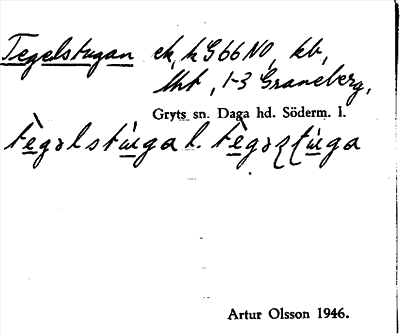 Tegelstugan ek, k G66NO, kb,
lht, 1-3 Graneberg,
Gryts sn. Daga hd. Söderm. l.
tègəlstúga l. tègəʐʈúga
Artur Olsson 1946.